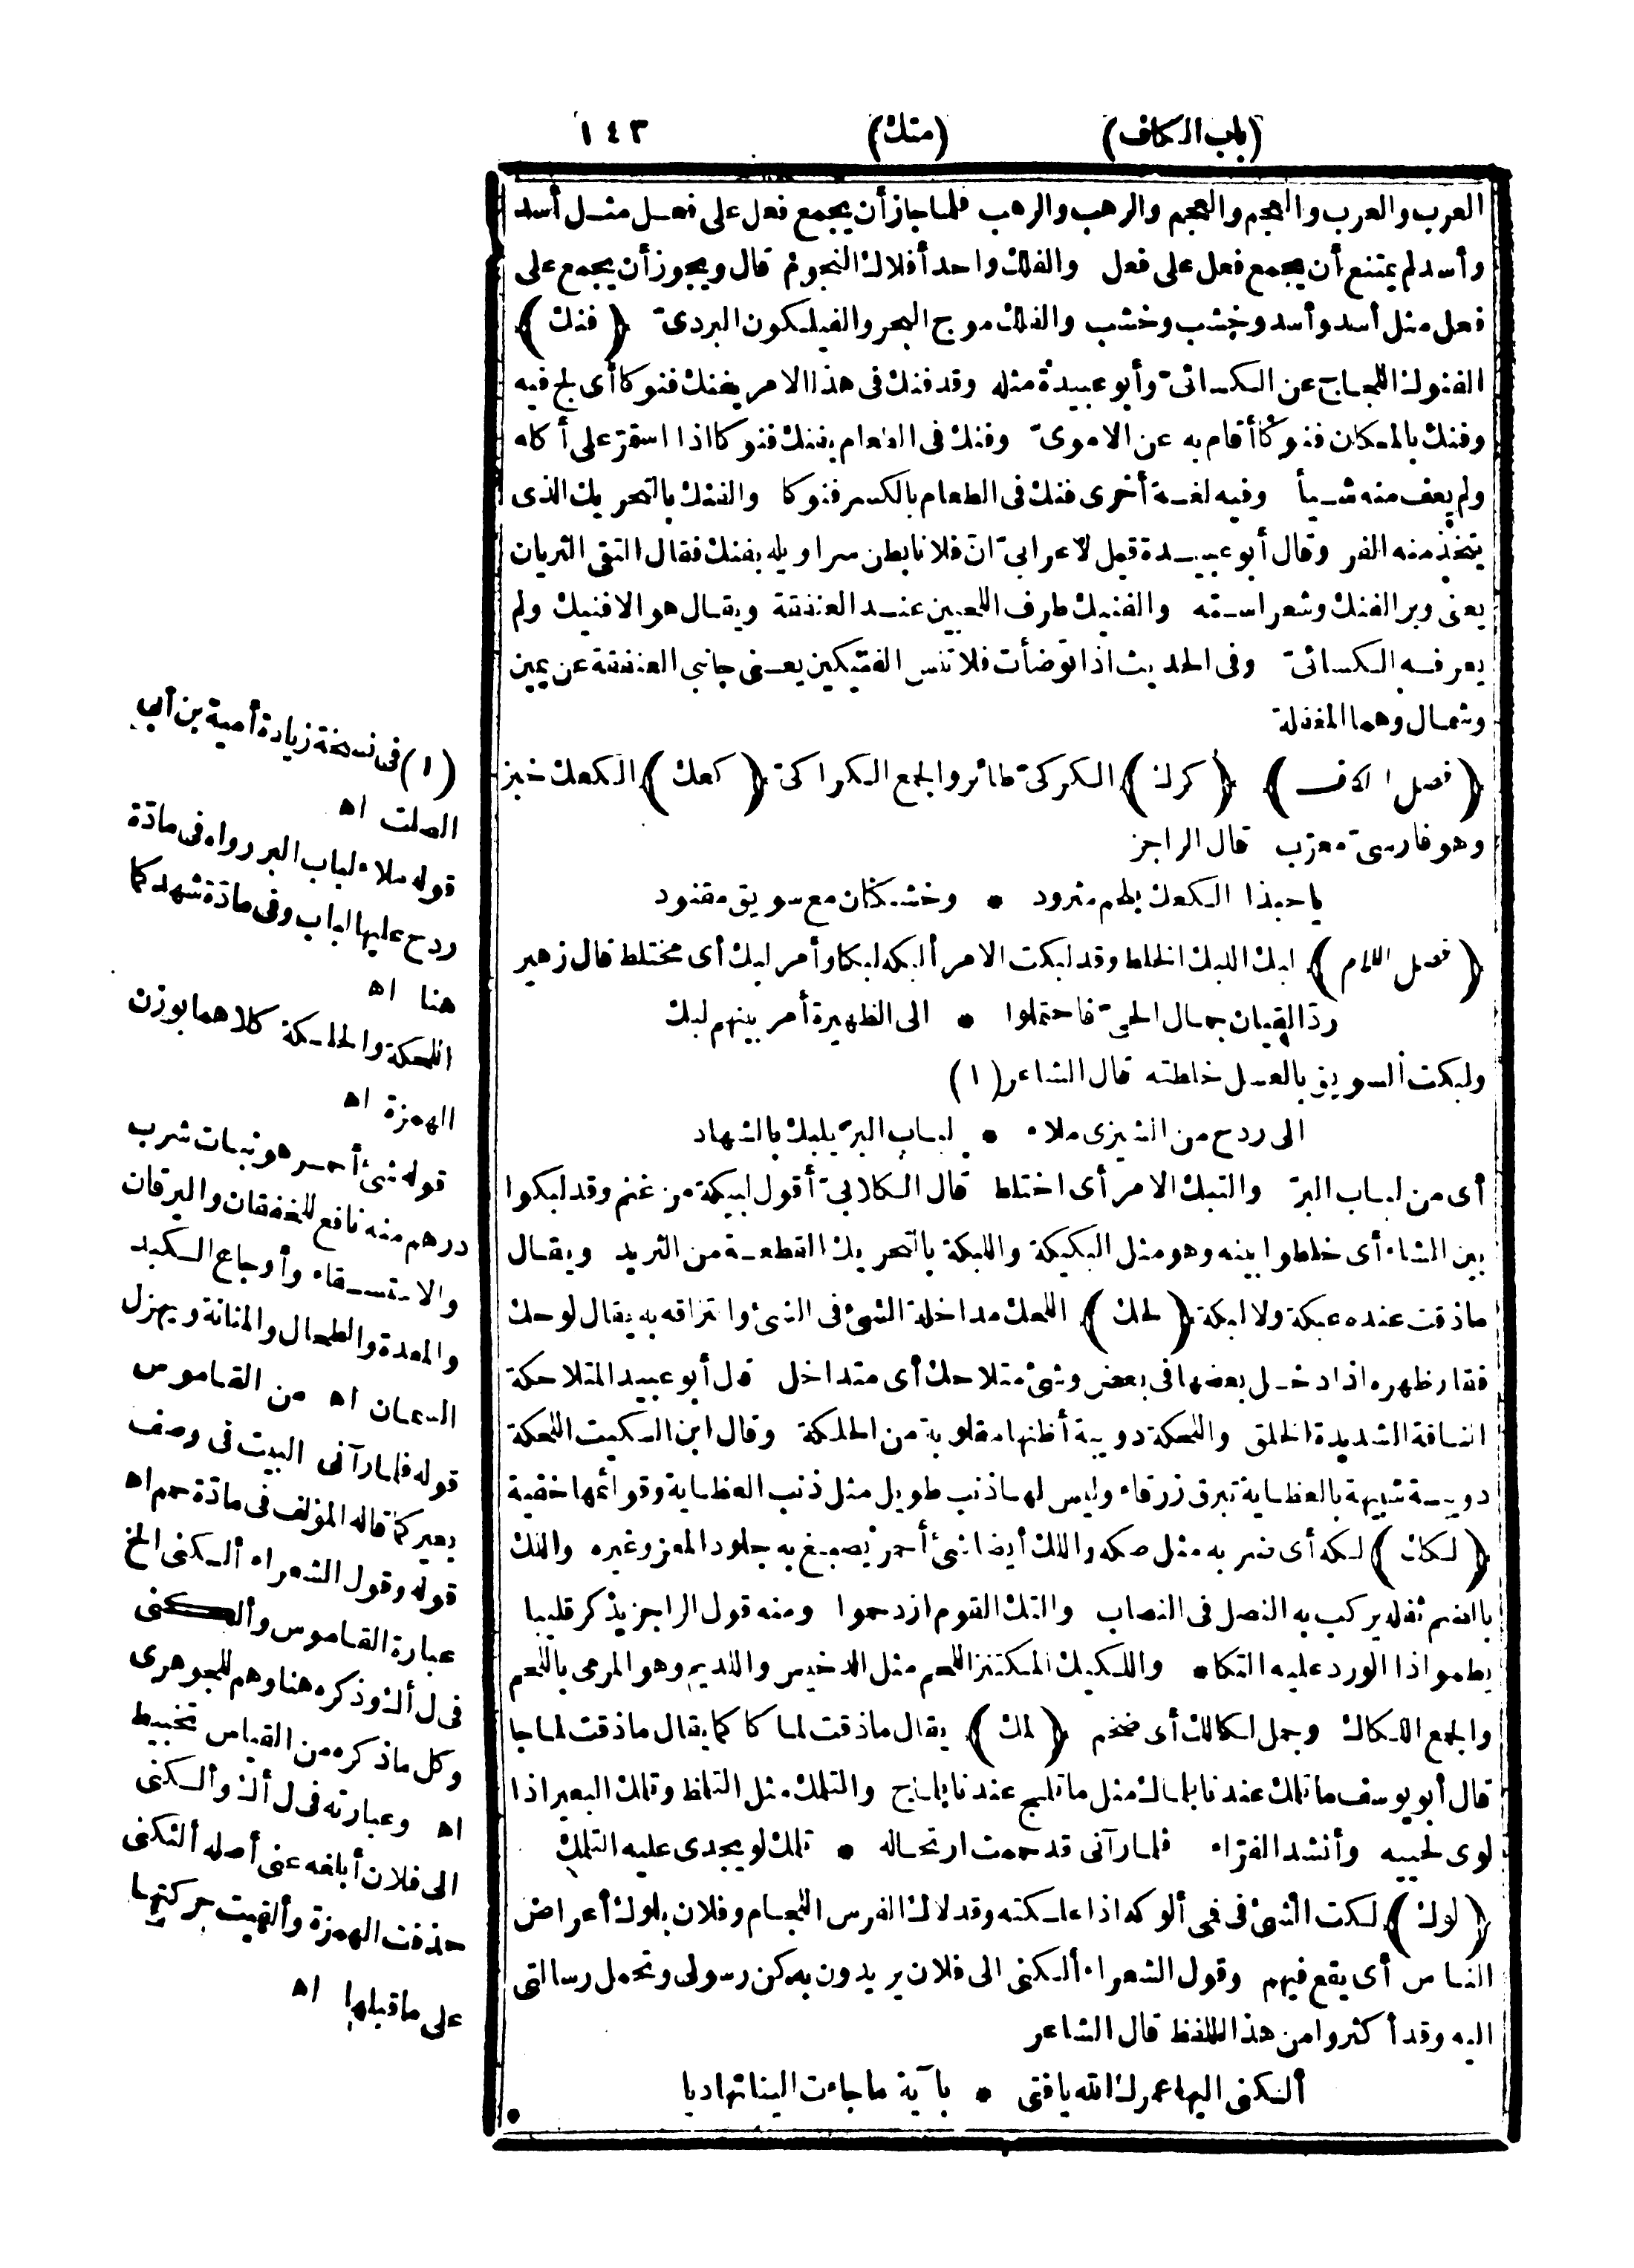 (باب الكاف) (متك) ١٤٣
العرب والعرب والعجم والعجم والرهب والرهب فلما جاز أن يجمع فعل على فعل مثل أسد
وأسد لم يمتنع أن يجمع فعل على فعل والفلك واحد أفلاك النجوم قال ويجوز أن يجمع على
فعل مثل أسد وأسد وخشب وخشب والفلك موج البحر والفيلكون البردىّ ﴿فنك﴾
الفنوك اللجاج عن الكسائىّ وأبو عبيدة مثله وقد فنك فى هذا الامر يفنك فنوكا أى لج فيه
وفنك بالمكان فنوكا أقام به عن الاموىّ وفنك فى الطعام يفنك فنوكا اذا استقرّ على أكله
ولم يعف منه شيأ وفيه لغة أخرى فنك فى الطعام بالكسر فنوكا والفنك بالتحريك الذى
يتخذ منه الفرو وقال أبو عبيدة قيل لاعرابىّ انّ فلانا بطن سراويله بفنك فقال التقى الثريان
يعنى وبر الفنك وشعر استه والفنيك طرف اللحيين عند العنفقة ويقال هو الافنيك ولم
يعرفه الكسائىّ وفى الحديث اذا توضأت فلا تنس الفنيكين يعنى جانبى العنفقة عن يمين
وشمال وهما المغفلة
﴿فصل الكاف﴾ ﴿كرك﴾ الكركىّ طائر والجمع الكراكىّ ﴿كعك﴾ الكعك خبز
وهو فارسىّ معرّب قال الراجز
يا حبذا الكعك بلحم مثرود * وخشكنان مع سويق مقنود
﴿فصل اللام﴾ لبك اللبك الخلط وقد لبكت الامر ألبكه لبكا وأمر لبك أى مختلط قال زهير
ردّ القيان جمال الحىّ فاحتملوا * الى الظهيرة أمر بينهم لبك
ولبكت السويق بالعسل خلطته قال الشاعر (١)
الى ردح من الشيزى ملاء * لباب البرّ يلبك بالشهاد
أى من لباب البرّ والتبك الامر أى اختلط قال الكلابىّ أقول لبيكة من غنم وقد لبكوا
بين الشاء أى خلطوا بينه وهو مثل البكيكة واللبكة بالتحريك القطعة من الثريد ويقال
ما ذقت عنده عبكة ولا لبكة ﴿لحك﴾ اللحك مداخلة الشئ فى الشئ والتزاقه به يقال لوحك
فقار ظهره اذا دخل بعضها فى بعض وشئ متلاحك أى متداخل قال أبو عبيد المتلاحكة
الناقة الشديدة الخلق واللحكة دويبة أظنها مقلوبة من الحلكة وقال ابن السكيت اللحكة
دويبة شبيهة بالعظاية تبرق زرقاء وليس لها ذنب طويل مثل ذنب العظاية وقوائمها خفية
﴿لكك﴾ لكه أى ضربه مثل صكه واللك أيضا شئ أحمر يصبغ به جلود المعز وغيره واللك
بالضم ثفله يركب به النصل فى النصاب والتك القوم ازدحموا ومنه قول الراجز يذكر قليبا
يطمو اذا الورد عليه التكا * واللكيك المكتنز اللحم مثل الدخيس واللديم وهو المرمى باللحم
والجمع اللكاك وجمل لكالك أى ضخم ﴿لمك﴾ يقال ما ذقت لماكا كما يقال ما ذقت لماجا
قال أبو يوسف ما تلمك عندنا بلماك مثل ما تلمج عندنا بلماج والتلمك مثل التلمظ وتلمك البعير اذا
لوى لحييه وأنشد الفرّاء فلما رآنى قد حممت ارتحاله * تلمك لو يجدى عليه التلمك
﴿لوك﴾ لكت الشئ فى فمى ألوكه اذا علكته وقد لاك الفرس اللجام وفلان يلوك أعراض
الناس أى يقع فيهم وقول الشعراء ألكنى الى فلان يريدون به كن رسولى وتحمل رسالتى
اليه وقد أكثروا من هذا اللفظ قال الشاعر
ألكنى اليها عمرك الله يا فتى * بآية ما جاءت الينا تهاديا
(١) فى نسخة زيادة أمية بن أبى
الصلت اه
قوله ملاء لباب البر رواه فى مادّة
ردح عليها لباب وفى مادّة شهد كما
هنا اه
اللحكة والحلكة كلاهما بوزن
الهمزة اه
قوله شئ أحمر هو نبات شرب
درهم منه نافع للخفقان واليرقان
والاستسقاء وأوجاع الكبد
والمعدة والطحال والمثانة ويهزل
السمان اه من القاموس
قوله فلما رآنى البيت فى وصف
بعير كما قاله المؤلف فى مادّة حمم اه
قوله وقول الشعراء ألكنى الخ
عبارة القاموس وألكنى
فى ل أك وذكره هنا وهم للجوهرى
وكل ما ذكره من القياس تخبيط
اه وعبارته فى ل أك وألكنى
الى فلان أبلغه عنى أصله ألئكنى
حذفت الهمزة وألقيت حركتها
على ما قبلها اه